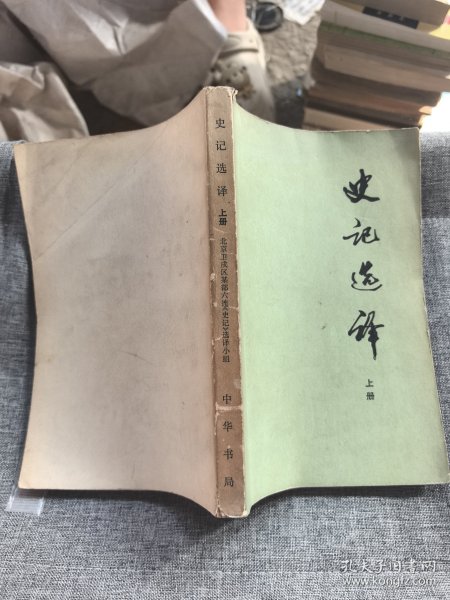 史记选译
上册
北京卫戍区某部六连《史记》选译小组
中华书局
史记选译
上册
孔夫子旧书网
www.kongfz.com